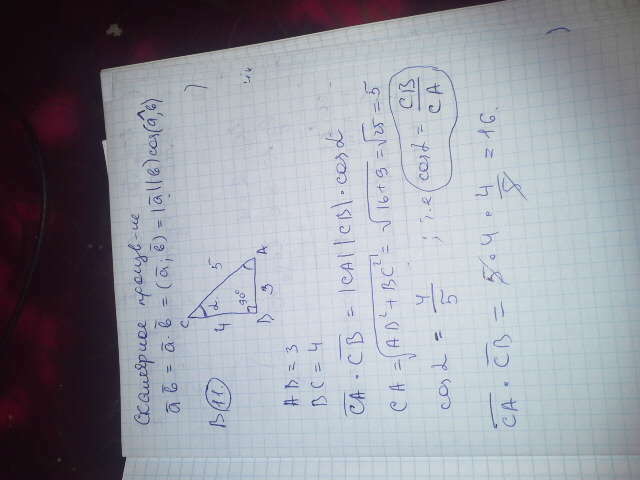 Скалярное произв-ие
a̅ b̅ = a̅·b̅ = (a̅; b̅) = |a̅||b̅|cos(a̅,b̅)
B 11
C
4
α
5
90°
B
3
A
AB = 3
BC = 4
C̅A̅ · C̅B̅ = |CA||CB|·cos α
CA = √AB²+BC² = √16+9 = √25 = 5
cos α = 4/5 ; т.е. cos α = CB/CA
C̅A̅ · C̅B̅ = 5·4·4/5 = 16.